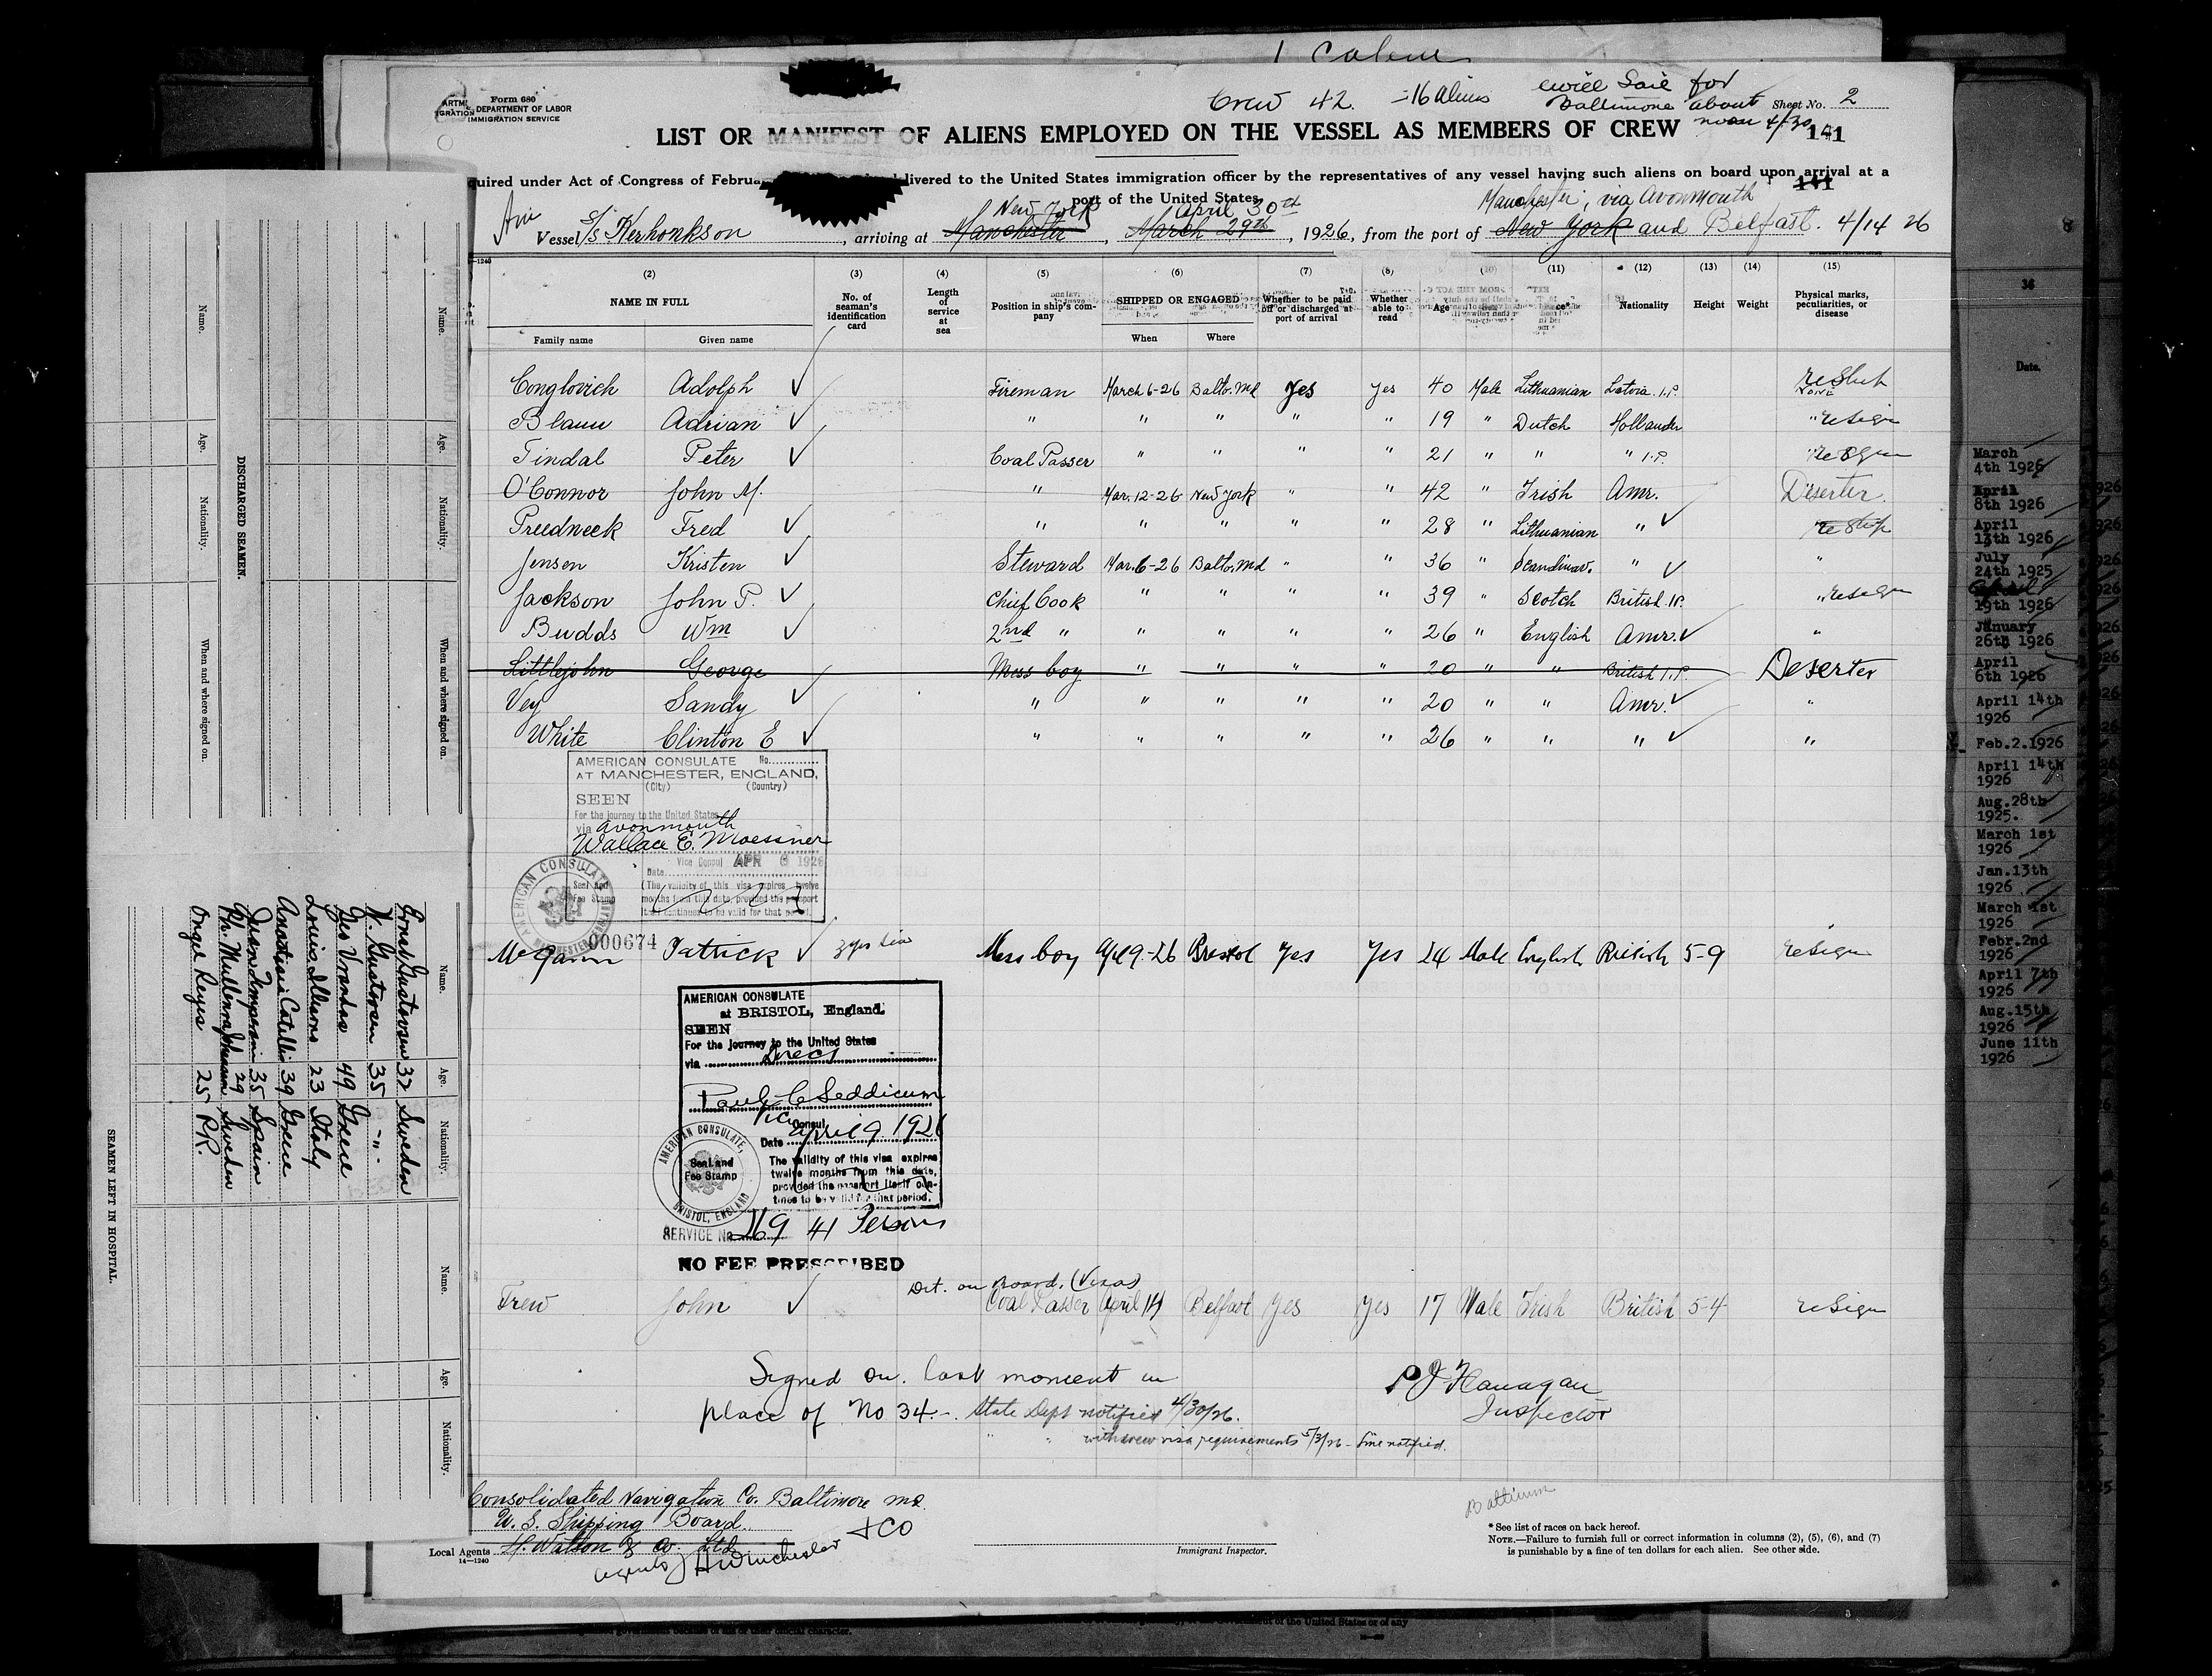 Form 680
DEPARTMENT OF LABOR
IMMIGRATION SERVICE
Crew 42. -16 Aliens
will Sail for
Baltimore about
noon 4/30
Sheet No. 2
LIST OR MANIFEST OF ALIENS EMPLOYED ON THE VESSEL AS MEMBERS OF CREW
141
quired under Act of Congress of Februa livered to the United States immigration officer by the representatives of any vessel having such aliens on board upon arrival at a
port of the United States
141
New York April 30th Manchester, via Avonmouth
Vessel S/S Kerhonkson, arriving at Manchester, March 29th, 1926, from the port of New York and Belfast. 4/14 26
(2) (3) (4) (5) (6) (7) (8) (10) (11) (12) (13) (14) (15)
NAME IN FULL No. of seaman's identification card Length of service at sea Position in ship's company SHIPPED OR ENGAGED Whether to be paid off or discharged at port of arrival Whether able to read Age Nationality Height Weight Physical marks, peculiarities, or disease
Family name Given name When Where
Conglovich Adolph ✓ Fireman March 6-26 Balto. Md Yes Yes 40 Male Lithuanian Latvia. I.P. reship
None
Blauw Adrian ✓ " " " " " 19 " Dutch Hollander " resign
Tindal Peter ✓ Coal Passer " " " " 21 " " " I.P. " resign
O'Connor John M. " Mar. 12-26 New York " " 42 " Irish Amr. Deserter.
Preedneck Fred ✓ " " " " " 28 " Lithuanian " ✓ reship
Jensen Kristen ✓ Steward Mar. 6-26 Balto. Md " " 36 " Scandinav. " ✓ "
Jackson John P. ✓ Chief Cook " " " " 39 " Scotch British. I.P. " resign
Budds Wm ✓ 2nd " " " " " 26 " English Amr. ✓ "
Littlejohn George Mess boy " " " " 20 " " British I.P. Deserter
Vey Sandy ✓ " " " " " 20 " " Amr. ✓ "
White Clinton E ✓ " " " " " 26 " " " ✓ "
AMERICAN CONSULATE No.
AT MANCHESTER, ENGLAND,
(City) (Country)
SEEN
For the journey to the United States
via Avonmouth
Wallace E. Moessner
Vice Consul APR 6 1926
Date
(The validity of this visa expires twelve
months from this date, provided the passport
itself continues to be valid for that period.
Seal and
Fee Stamp
AMERICAN CONSULATE
000674
McGann Patrick ✓ 3 yrs Mess boy Apl 9-26 Bristol Yes Yes 24 Male English British 5-9 resign
AMERICAN CONSULATE
at BRISTOL, England.
SEEN
For the journey to the United States
via Direct
Paul C Seddicum
Vice Consul
Date April 9 1926
The validity of this visa expires
twelve months from this date,
provided the passport itself con-
tinues to be valid for that period.
AMERICAN CONSULATE,
Seal and
Fee Stamp
BRISTOL, ENGLAND
SERVICE No. 269 41 Persons
NO FEE PRESCRIBED
Det. on board. (Visa)
Trew John ✓ Coal Passer April 14 Belfast Yes Yes 17 Male Irish British 5-4 resign
Signed on. last moment in
place of No 34. - State Dept notified 4/30/26.
" " withdrew visa requirements 5/3/26 - line notified.
P J Flanagan
Inspector
Consolidated Navigation Co. Baltimore Md.
U. S. Shipping Board
& CO
Local Agents H. Watson & Co. Ltd
14-1240
agents
Immigrant Inspector.
* See list of races on back hereof.
NOTE.—Failure to furnish full or correct information in columns (2), (5), (6), and (7)
is punishable by a fine of ten dollars for each alien. See other side.
Name. Age. Nationality. When and where signed on.
DISCHARGED SEAMEN.
Name. Age. Nationality. When and where signed on.
Name. Age. Nationality. Name. Age. Nationality.
Ernst Gustavson 37 Sweden
N. Gustavsen 35 -"-
Geo Vrondas 49 Greece
Louis 23 Italy
39 Greece
Juan 35 Spain
29 Sweden
Reyes 25 P.R.
SEAMEN LEFT IN HOSPITAL.
36
Date.
March
4th 1926
April
8th 1926
April
13th 1926
July
24th 1925
April
19th 1926
January
26th 1926
April
6th 1926
April 14th
1926
Feb.2.1926
April 14th
1926
Aug.28th
1925.
March 1st
1926
Jan.13th
1926
March 1st
1926
Febr.2nd
1926
April 7th
1926
Aug.15th
1926
June 11th
1926